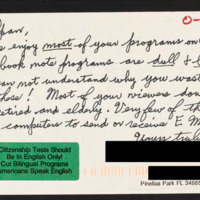 span,
enjoy most of your programs on
book note programs are dull &
not understand why you wast
hose! Most of your viewers don
etired and elderly. Very few of th
computers to send or receive E M
Yours tru
Citizenship Tests Should
Be In English Only!
Cut Bilingual Programs
Americans Speak English
Pinellas Park FL